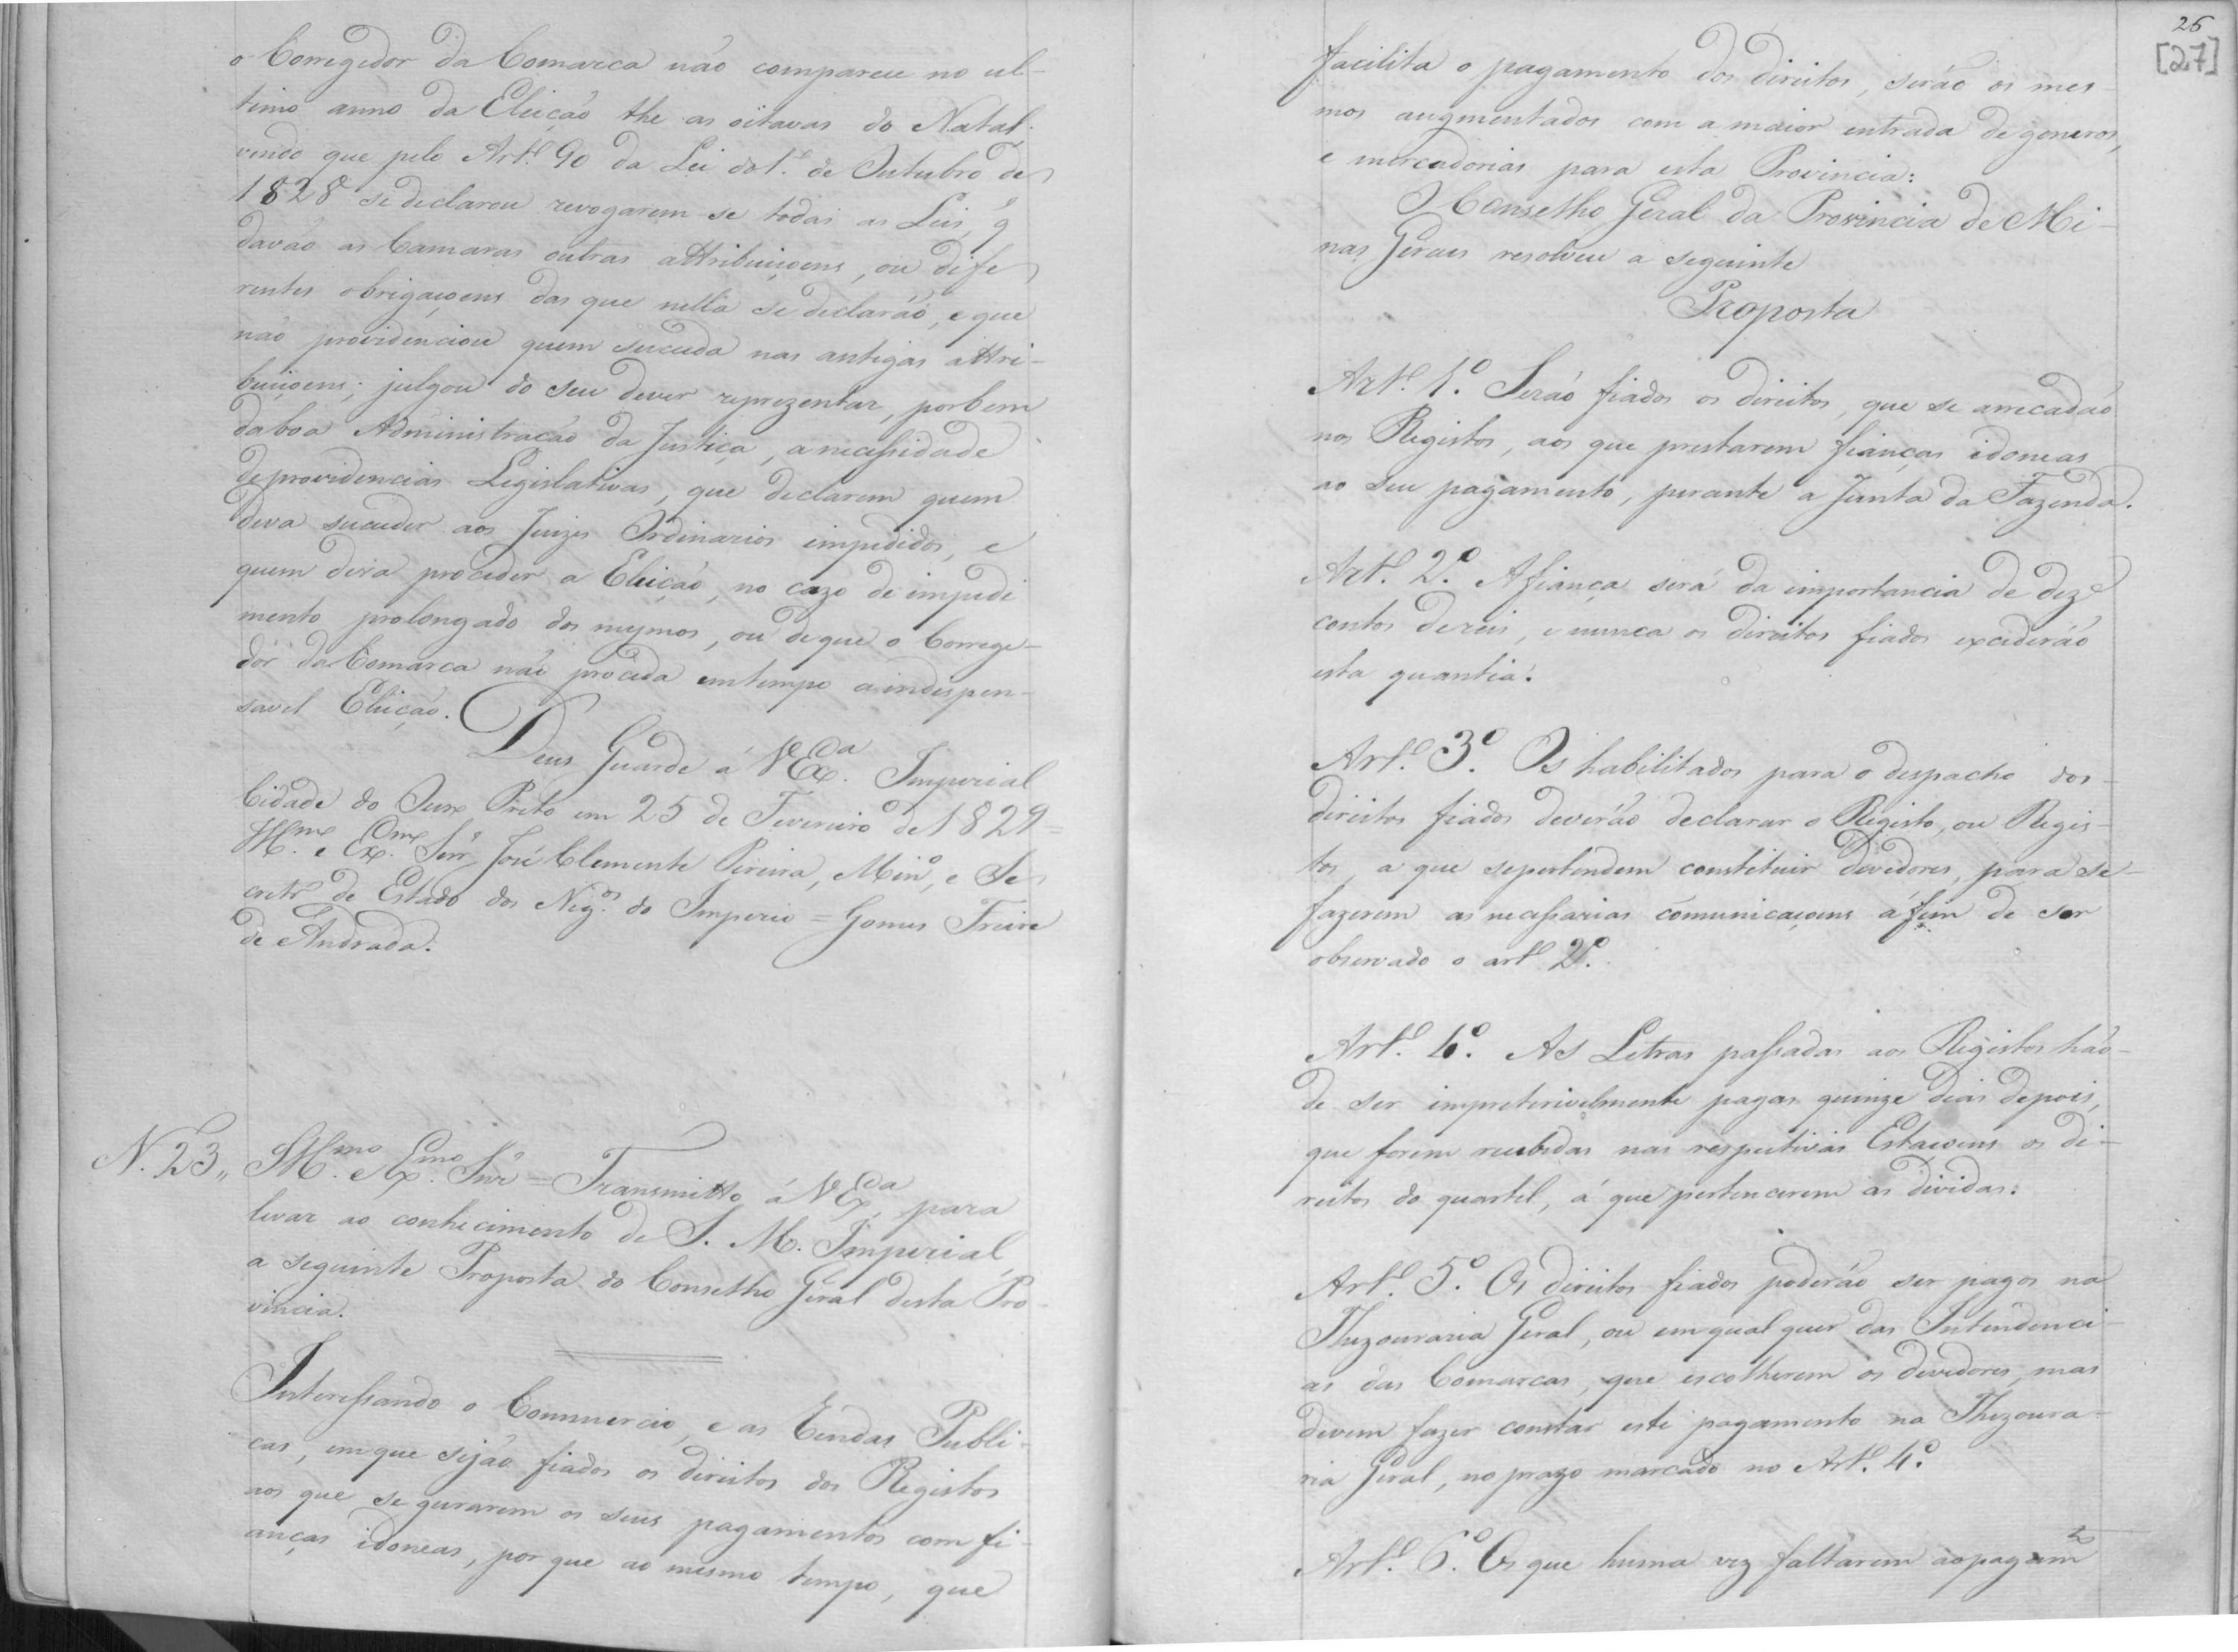 o Corregedor da Comarca não compareu no ul-
timo anno da Eleição the as oitavas do Natal;
vendo que pelo Art.º 90 da Lei do 1.º de Outubro de
1828 se declarou revogarem se todas as Leis, q̃
davão as Camaras outras attribuiçoens, ou dife
rentes obrigaçoens das que nella se declarão, e que
não providenciou quem suceda nas antigas attri-
buiçoens; julgou do seu dever reprezentar, por bem
da boa Administração da Justiça, a necessidade
de providencias Legislativas, que declarem quem
deva suceder aos Juizes Ordinarios impedidos, e
quem deva proceder a Eleição, no cazo de impedi
mento prolongado dos mesmos, ou de que o Correge-
dor da Comarca não proceda em tempo a indespen-
savel Eleição.
Deus Guarde á V Ex.ª Imperial
Cidade do Ouro Preto em 25 de Fevereiro de 1829 =
Ill.mo e Ex.mo Snr̃ José Clemente Pereira, Min.º, e Se
cretr.º de Estado dos Neg.os do Imperio = Gomes Freire
de Andrada.
N. 23,, Ill.mo e Ex.mo Snr̃ = Transmitto á V Ex.ª para
levar ao conhecimento de S. M. Imperial,
a seguinte Proposta do Conselho Geral desta Pro-
vincia.
Interessando o Commercio, e as Rendas Publi-
cas, em que sejão fiados os direitos dos Registos
aos que segurarem os seus pagamentos com fi-
anças idoneas, por que ao mesmo tempo, que
26
[27]
facilita o pagamento dos direitos, serão os mes-
mos augmentados com a maior entrada de generos,
e mercadorias para esta Provincia:
O Conselho Geral da Provincia de Mi-
nas Geraes resolveu a seguinte
Proposta
Art.º 1.º Serão fiados os direitos, que se arrecadão
nos Registos, aos que prestarem fianças idoneas
ao seu pagamento, perante a Junta da Fazenda.
Art.º 2.º A fiança será da importancia de dez
contos de reis, e nunca os direitos fiados excederão
esta quantia.
Art.º 3.º Os habilitados para o despacho dos-
direitos fiados deverão declarar o Registo, ou Regis-
tos, a que se pertendem constituir devedores, para se-
fazerem as necessarias comunicaçoens á fim de ser
observado o art.º 2.º
Art.º 4.º As Letras passadas aos Registos hão-
de ser impreterivelmente pagas quinze dias depois,
que forem recebidas nas respectivas Estaçoens os di-
reitos do quartel, á que pertencerem as dividas.
Art.º 5.º Os direitos fiados poderão ser pagos na
Thezouraria Geral, ou em qual quer das Intendenci-
as das Comarcas, que escolherem os devedores, mas
devem fazer constar este pagamento na Thezoura-
ria Geral, no prazo marcado no Art.º 4.º
Art.º 6.º Os que huma vez faltarem ao pagam.to